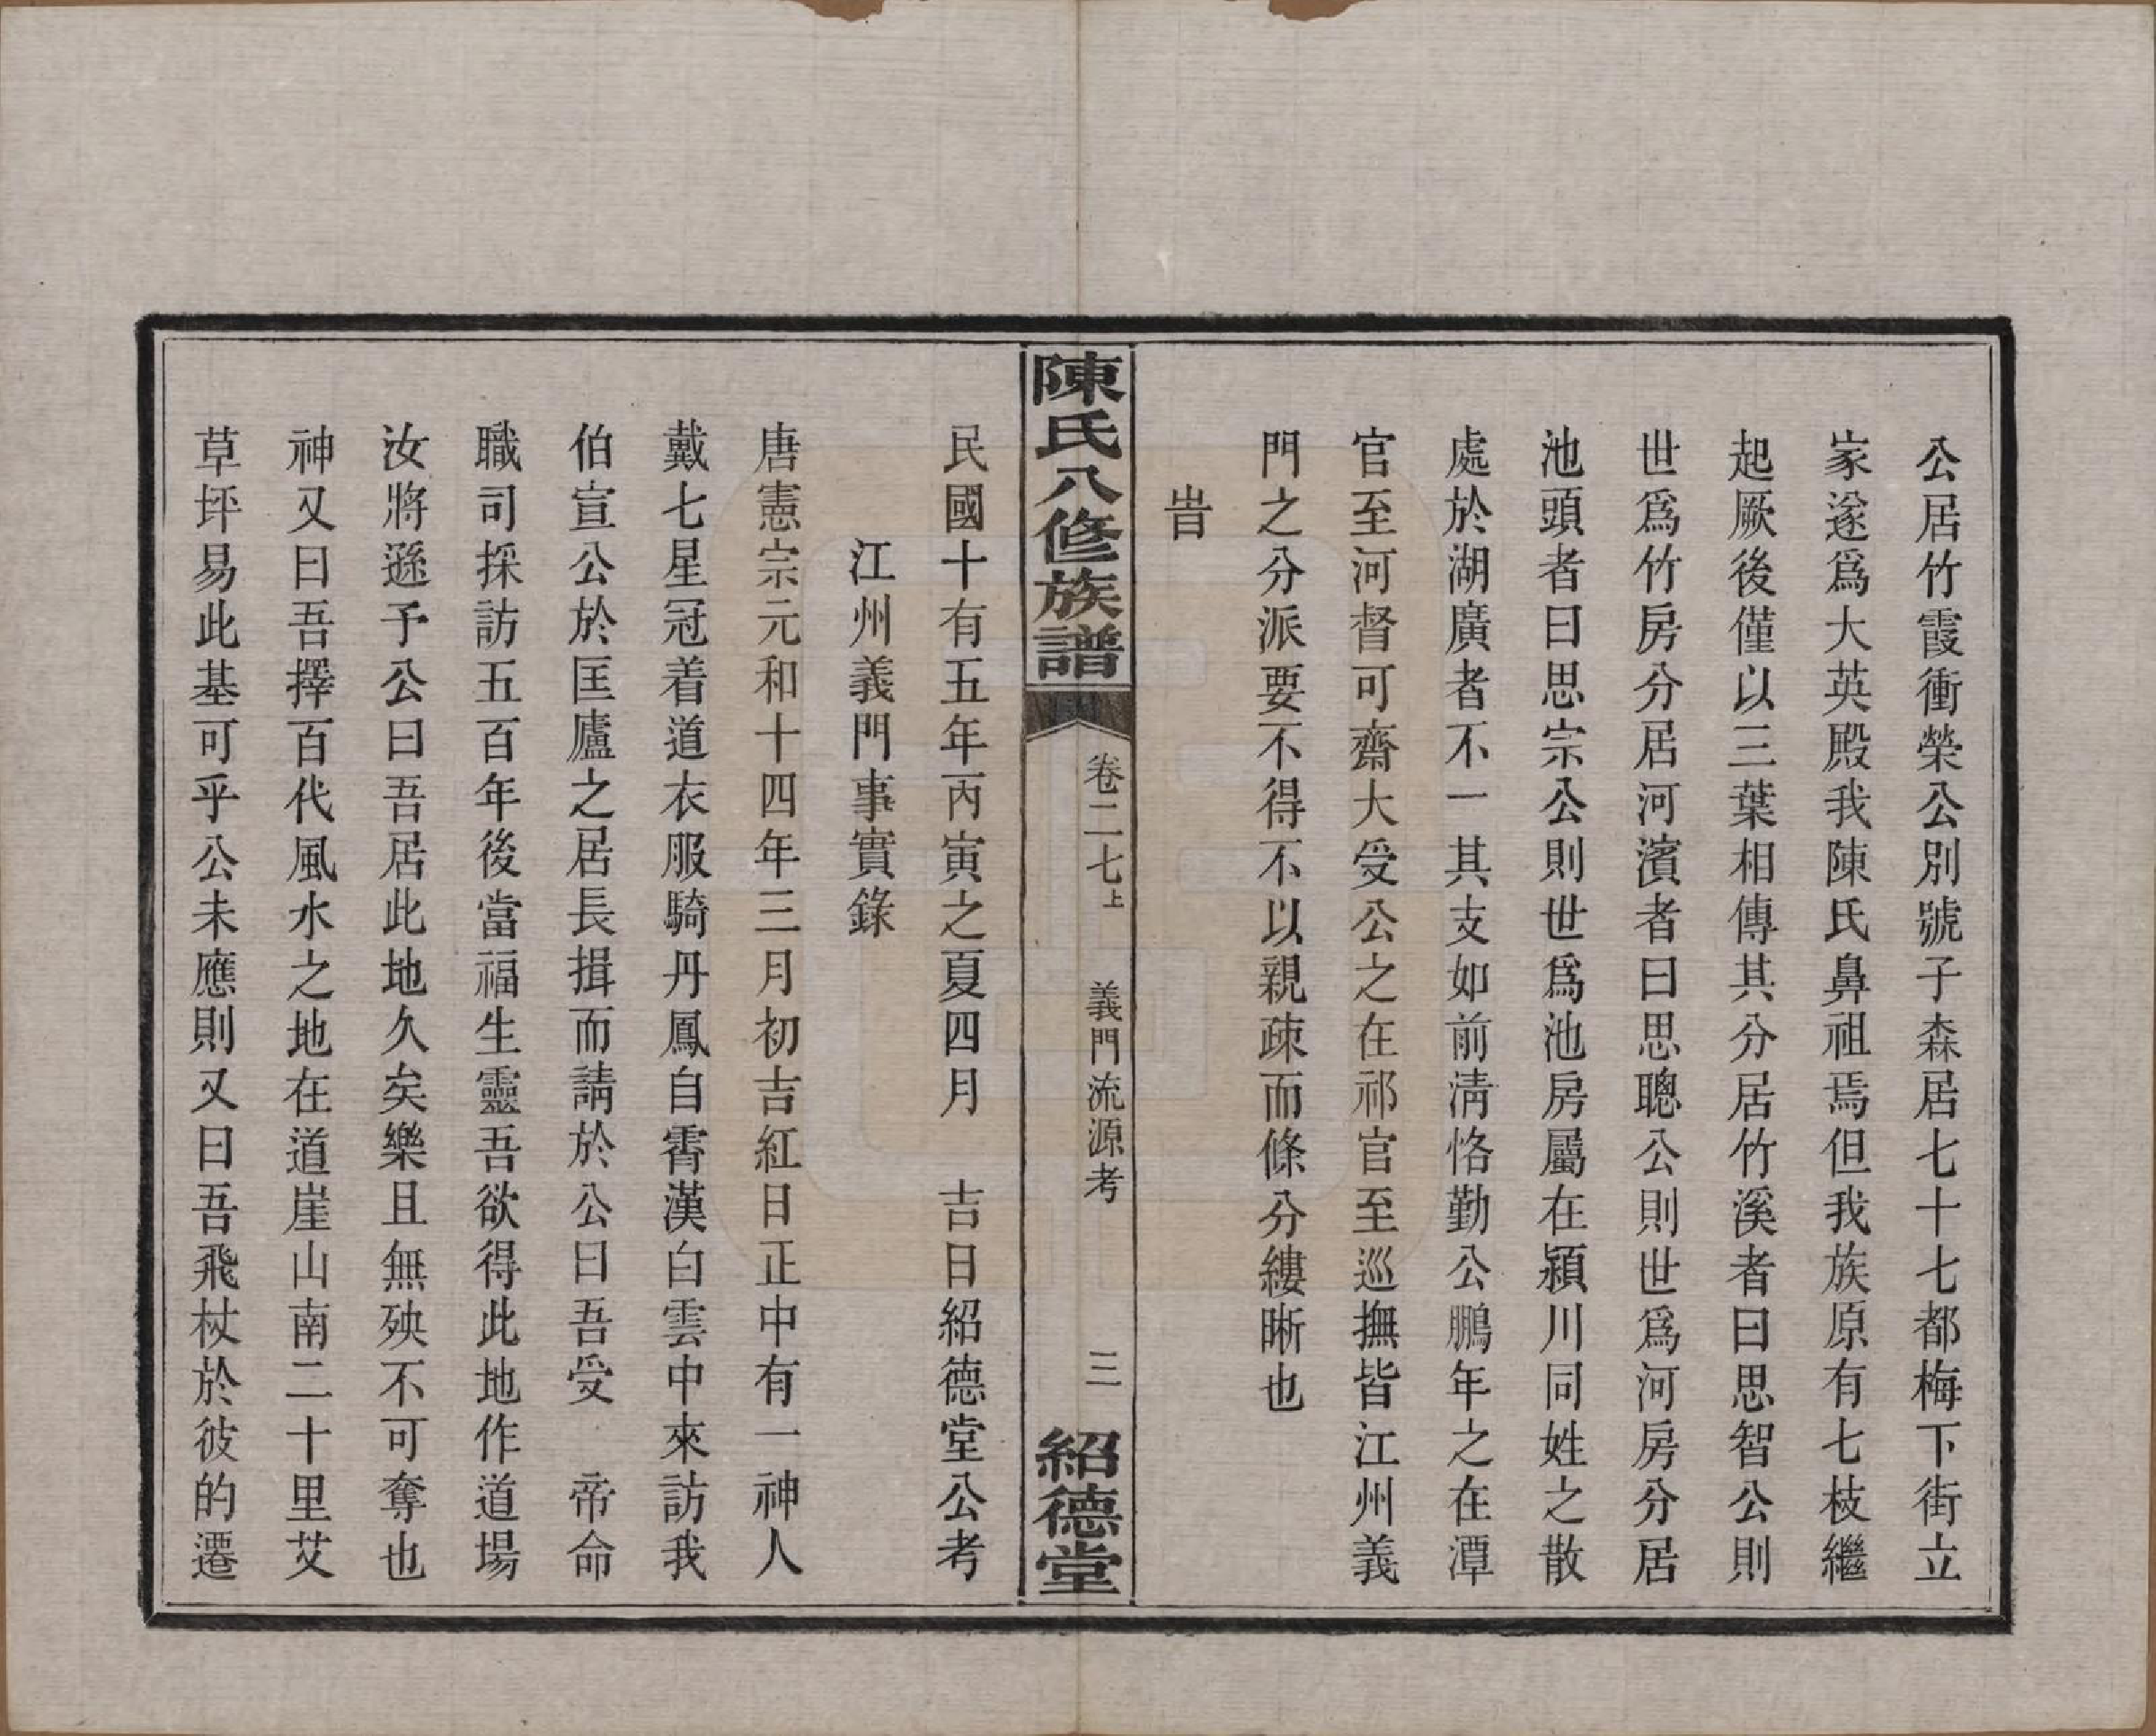 公居竹霞衝榮公別號子森居七十七都梅下街立
家遂爲大英殿我陳氏鼻祖焉但我族原有七枝繼
起厥後僅以三葉相傳其分居竹溪者曰思智公則
世爲竹房分居河濱者曰思聰公則世爲河房分居
池頭者曰思宗公則世爲池房屬在潁川同姓之散
處於湖廣者不一其支如前淸恪勤公鵬年之在潭
官至河督可齋大受公之在祁官至巡撫皆江州義
門之分派要不得不以親疎而條分縷晰也
旹
陳氏八修族譜
卷二七上
義門流源考
三
紹德堂
民國十有五年丙寅之夏四月　吉日紹德堂公考
江州義門事實錄
唐憲宗元和十四年三月初吉紅日正中有一神人
戴七星冠着道衣服騎丹鳳自霄漢白雲中來訪我
伯宣公於匡廬之居長揖而請於公曰吾受　帝命
職司採訪五百年後當福生靈吾欲得此地作道場
汝將遜予公曰吾居此地久矣樂且無殃不可奪也
神又曰吾擇百代風水之地在道崖山南二十里艾
草坪易此基可乎公未應則又曰吾飛杖於彼的遷